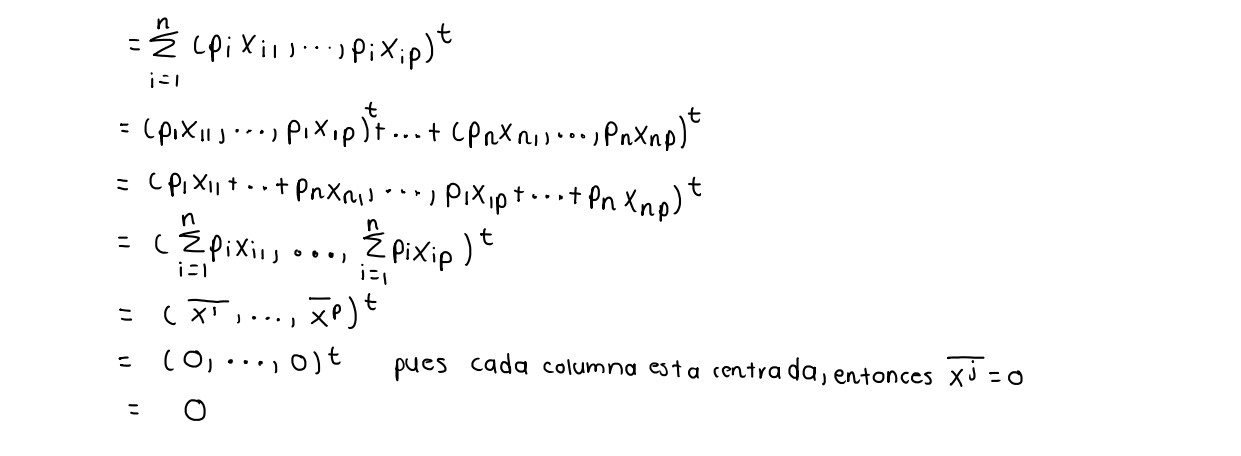 = ∑_{i=1}^{n} (p_i x_{i1}, ..., p_i x_{ip})^t
= (p_1 x_{11}, ..., p_1 x_{1p})^t + ... + (p_n x_{n1}, ..., p_n x_{np})^t
= (p_1 x_{11} + ... + p_n x_{n1}, ..., p_1 x_{1p} + ... + p_n x_{np})^t
= (∑_{i=1}^{n} p_i x_{i1}, ..., ∑_{i=1}^{n} p_i x_{ip})^t
= (\overline{x^1}, ..., \overline{x}^p)^t
= (0, ..., 0)^t pues cada columna esta centrada, entonces \overline{x^j} = 0
= 0